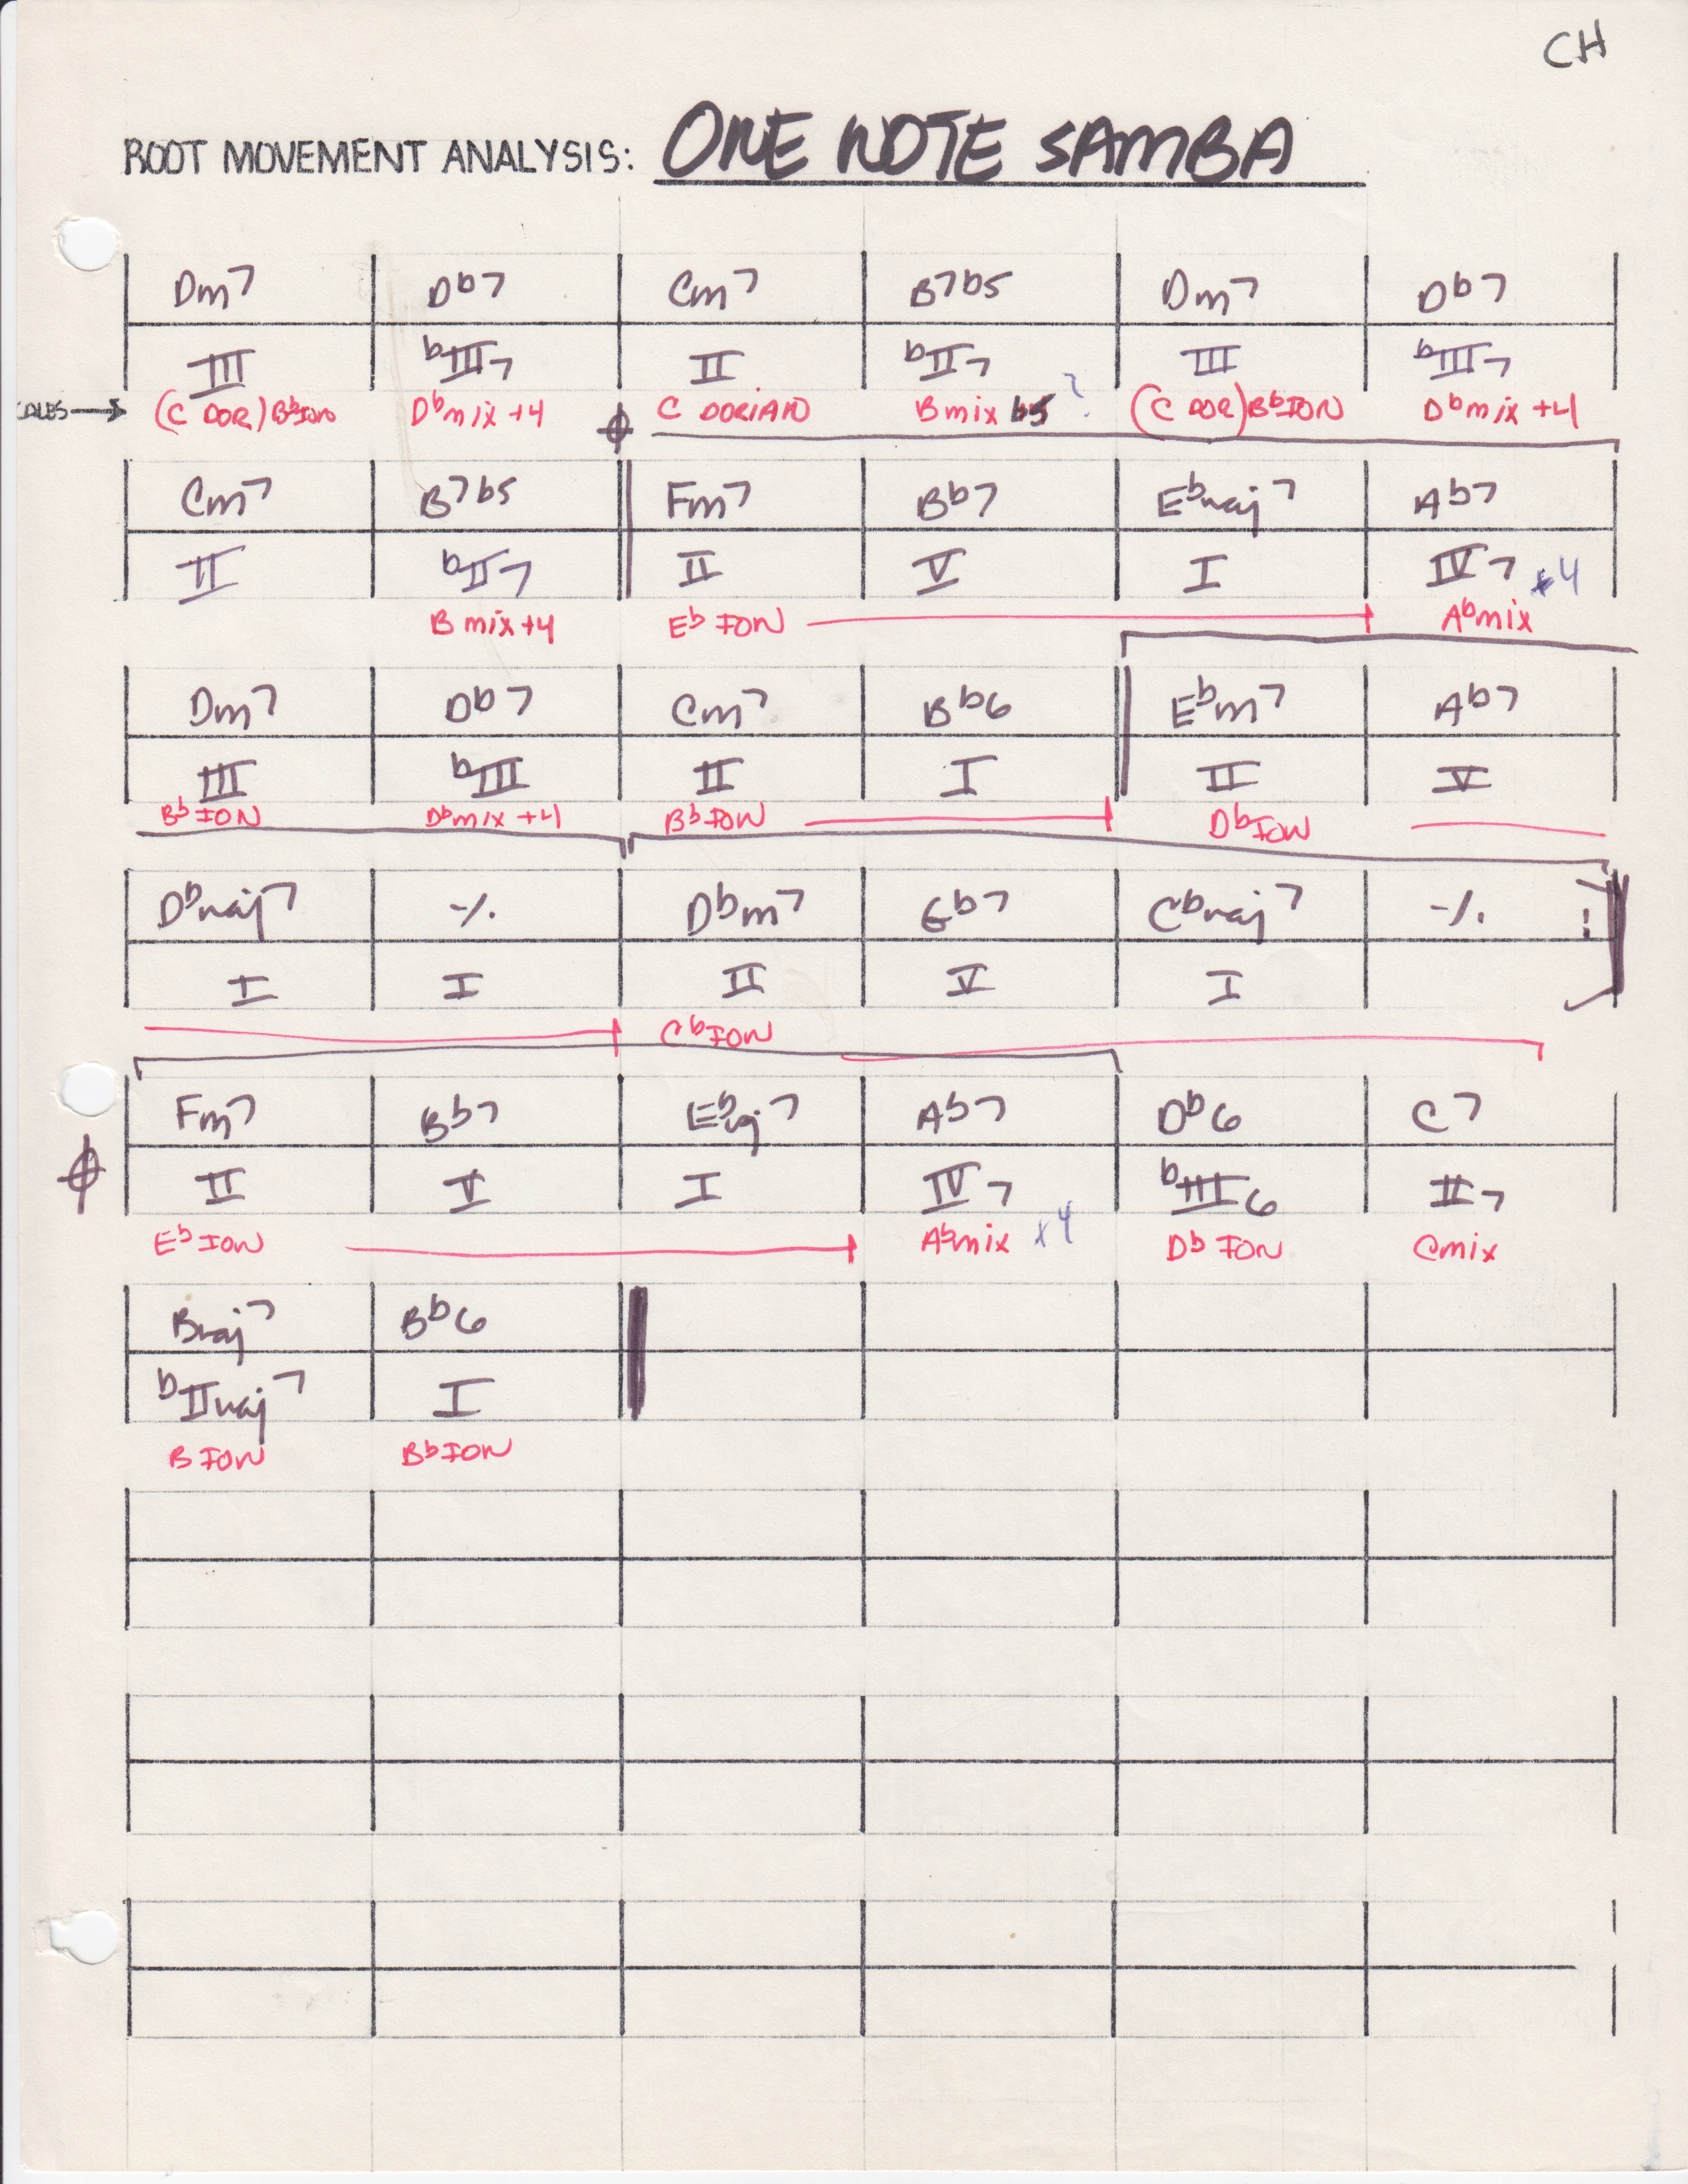 CH
ROOT MOVEMENT ANALYSIS: ONE NOTE SAMBA
Dm7 Db7 Cm7 B7b5 Dm7 Db7
III bIII7 II bII7 III bIII7
(C DOR) Bb ION Db mix +4 C DORIAN B mix b5 ? (C DOR) Bb ION Db mix +4
Cm7 B7b5 Fm7 Bb7 Ebmaj7 Ab7
II bII7 II V I IV7 +4
B mix +4 Eb ION Ab mix
Dm7 Db7 Cm7 Bb6 Ebm7 Ab7
III bIII II I II V
Bb ION Db mix +4 Bb ION Db ION
Dbmaj7 -/. Dbm7 Gb7 Cbmaj7 -/.
I I II V I
Cb ION
Fm7 Bb7 Ebmaj7 Ab7 Db6 C7
II V I IV7 bIII6 II7
Eb ION Ab mix +4 Db ION C mix
Bmaj7 Bb6
bIImaj7 I
B ION Bb ION